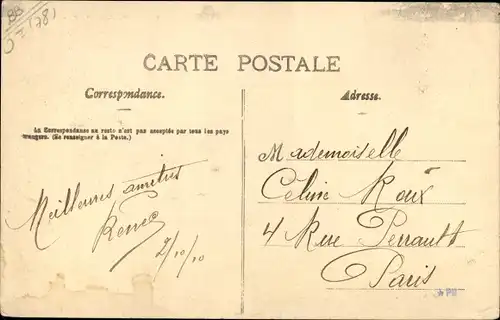 BB
(78)
CARTE POSTALE
Correspondance.
Adresse.
La Correspondance au recto n'est pas acceptée par tous les pays
étrangers. (Se renseigner à la Poste.)
Meilleures amitiés
Renée
2/10/10
Mademoiselle
Céline Roux
4 Rue Perrault
Paris